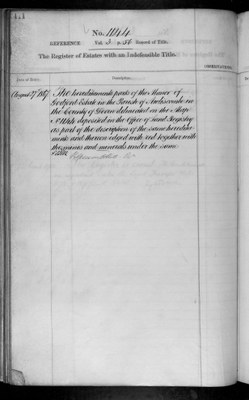 No. 1144
REFERENCE Vol. Record of Title.
The Register of Estates with an Indefeasible Title.
Date of Entry. Description. OBSERVATIONS.
August 7th 1867 The hereditaments parts of the Manor of
Estate in the Parish of in
the County of Devon delineated on the Map
No 1144 deposited in the Office of Land Registry
as part of the description of the same heredita-
ments and thereon edged with red together with
the mines and minerals under the same